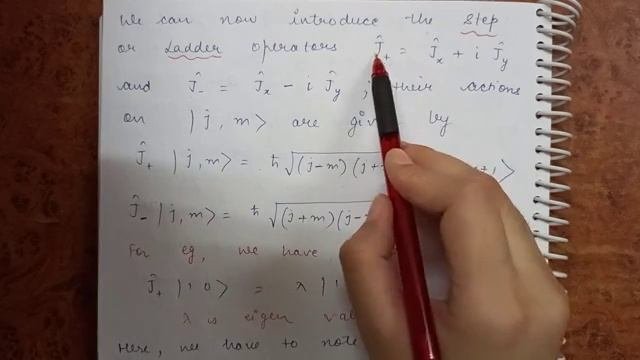 We can now introduce the Step
or Ladder operators Ĵ+ = Ĵx + i Ĵy
and Ĵ- = Ĵx - i Ĵy ; their actions
on |j, m> are given by
Ĵ+ |j, m> = ħ √(j-m) (j+
Ĵ- |j, m> = ħ √(j+m) (j-
For eg, we have
Ĵ+ |1 0> = λ |1
λ is eigen
Here, we have to note